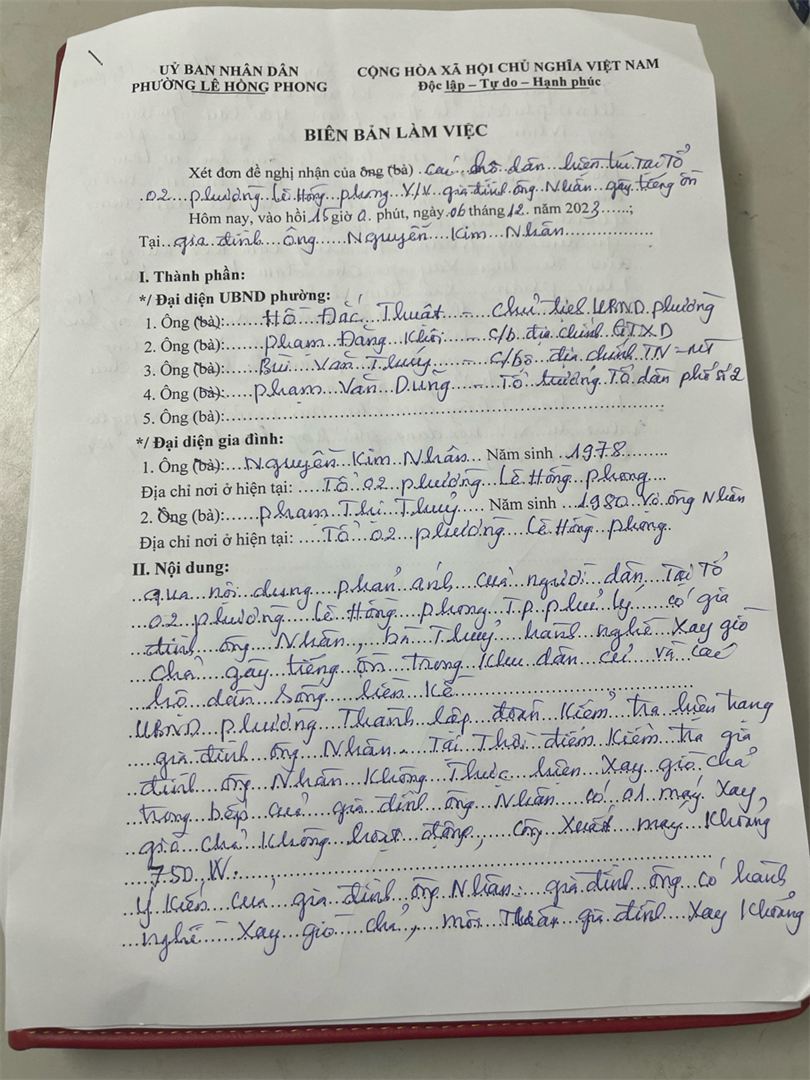 UỶ BAN NHÂN DÂN
PHƯỜNG LÊ HỒNG PHONG
CỘNG HÒA XÃ HỘI CHỦ NGHĨA VIỆT NAM
Độc lập – Tự do – Hạnh phúc
BIÊN BẢN LÀM VIỆC
Xét đơn đề nghị nhận của ông (bà) Các hộ dân hiện tại Tổ
02 phường Lê Hồng phong V/v gia đình ông Nhân gây tiếng ồn
Hôm nay, vào hồi 15 giờ 0 phút, ngày 06 tháng 12 năm 2023......;
Tại gia đình ông Nguyễn Kim Nhân
I. Thành phần:
*/ Đại diện UBND phường:
1. Ông (bà): Hồ Đắc Thuật - Chủ tịch UBND phường
2. Ông (bà): Phạm Đăng Khôi - c/b địa chính GTXD
3. Ông (bà): Bùi Văn Thuý - c/bộ địa chính TN-MT
4. Ông (bà): Phạm Văn Dũng - Tổ trưởng Tổ dân phố số 2
5. Ông (bà):
*/ Đại diện gia đình:
1. Ông (bà): Nguyễn Kim Nhân Năm sinh 1978
Địa chỉ nơi ở hiện tại: Tổ 02 phường Lê Hồng phong
2. Ông (bà): Phạm Thị Thuỷ Năm sinh 1980 vợ ông Nhân
Địa chỉ nơi ở hiện tại: Tổ 02 phường Lê Hồng phong.
II. Nội dung:
Qua nội dung phản ánh của người dân Tại Tổ
02 phường Lê Hồng phong T.p phủ lý có gia
đình ông Nhân, bà Thuỷ hành nghề xay giò
chả gây tiếng ồn trong khu dân cư và các
hộ dân sống liền kề
UBND phường Thành lập đoàn Kiểm tra hiện trạng
gia đình ông Nhân. Tại Thời điểm Kiểm tra gia
đình ông Nhân Không Thực hiện Xay giò chả
trong bếp của gia đình ông Nhân có 01 máy xay
giò chả Không hoạt động, công xuất máy Khoảng
750 W.
Ý Kiến của gia đình ông Nhân: gia đình ông có hành
nghề Xay giò chả, mỗi gia đình xay Khoảng